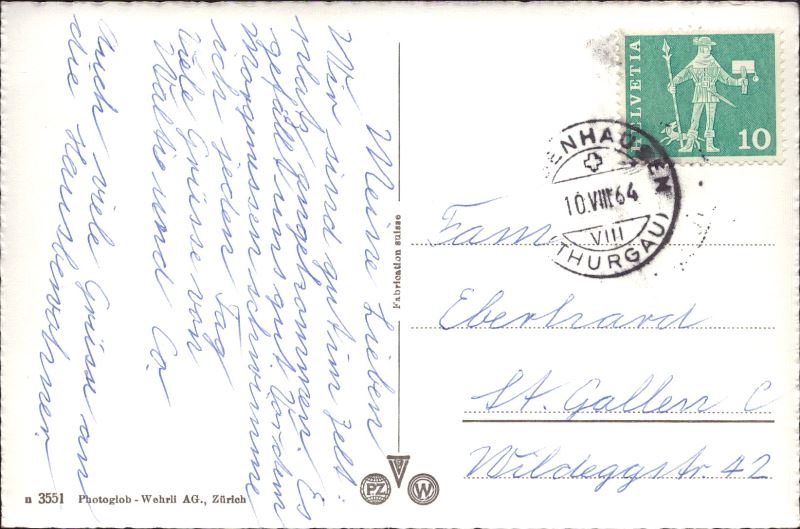 Meine Lieben
Wir sind gut im Zelt-
platz angekommen. Es
gefällt uns gut. Vor dem
Morgenessen schwimme
ich jeden Tag
Viele Grüsse von
Walti und Co.
Auch viele Grüsse an
die Hausbewohner.
Fabrication suisse
HELVETIA
10
ENHAUSEN
10.VIII.64
VIII
(THURGAU)
Fam
Eberhard
St. Gallen C
Wildeggstr. 42
PZ
W
n 3551 Photoglob - Wehrli AG., Zürich